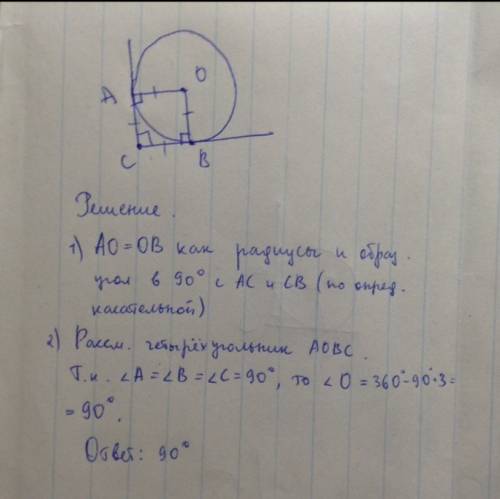 A
O
C
B
Решение.
1) AO = OB как радиусы и образ.
угол в 90° с AC и CB (по опред.
касательной)
2) Рассм. четырёхугольник AOBC.
Т.к. ∠A = ∠B = ∠C = 90°, то ∠O = 360°-90°·3=
= 90°.
Ответ: 90°